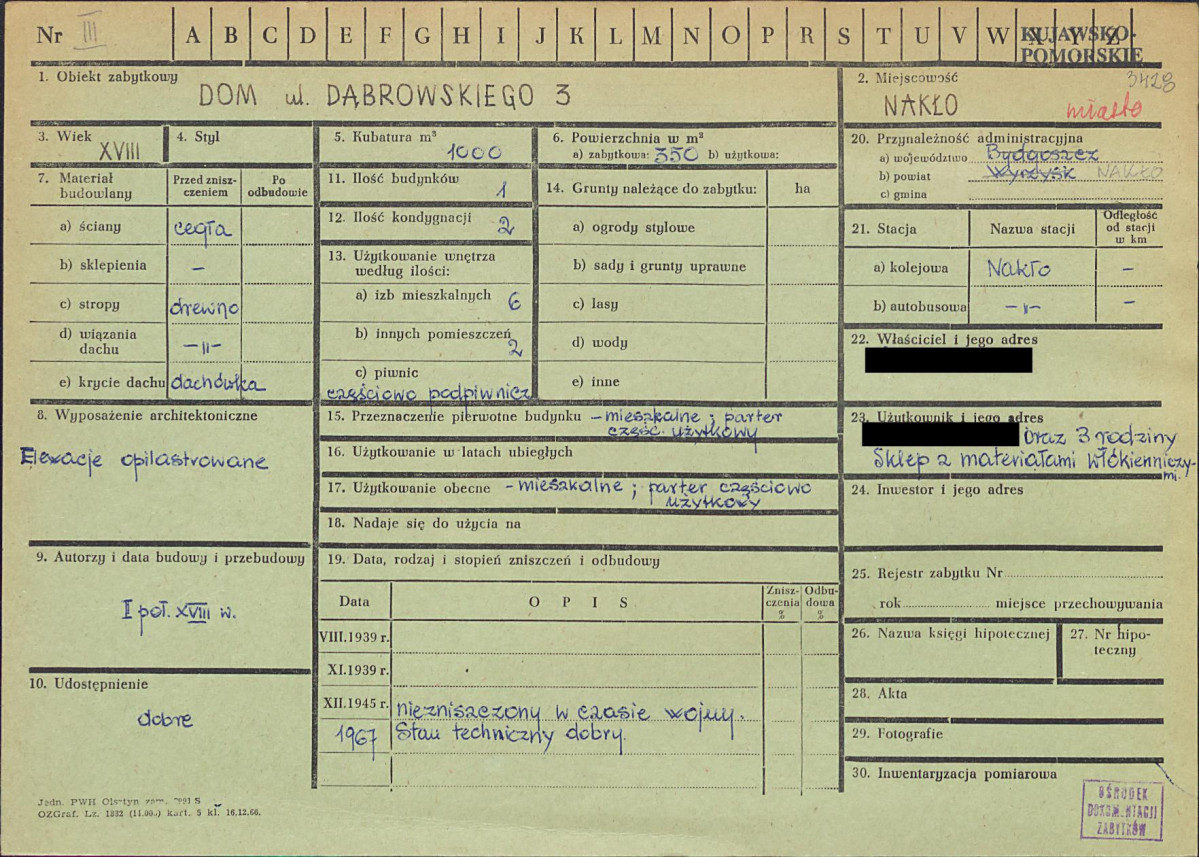 Nr III A B C D E F G H I J K L M N O P R S T U V W X Y Z
KUJAWSKO-
POMORSKIE
3428
1. Obiekt zabytkowy
DOM ul. DĄBROWSKIEGO 3
2. Miejscowość
NAKŁO
miasto
3. Wiek
XVIII
4. Styl
5. Kubatura m³
1000
6. Powierzchnia w m²
a) zabytkowa: 350 b) użytkowa:
20. Przynależność administracyjna
a) województwo Bydgoszcz
b) powiat Wyrzysk NAKŁO
c) gmina
7. Materiał budowlany
Przed zniszczeniem
Po odbudowie
a) ściany cegła
b) sklepienia –
c) stropy drewno
d) wiązania dachu –"–
e) krycie dachu dachówka
11. Ilość budynków 1
12. Ilość kondygnacji 2
13. Użytkowanie wnętrza
według ilości:
a) izb mieszkalnych 6
b) innych pomieszczeń 2
c) piwnic
częściowo podpiwnicz.
14. Grunty należące do zabytku: ha
a) ogrody stylowe
b) sady i grunty uprawne
c) lasy
d) wody
e) inne
21. Stacja
Nazwa stacji
Odległość
od stacji
w km
a) kolejowa Nakło –
b) autobusowa –"– –
22. Właściciel i jego adres
8. Wyposażenie architektoniczne
Elewacje opilastrowane
15. Przeznaczenie pierwotne budynku – mieszkalne; parter
część. użytkowy
16. Użytkowanie w latach ubiegłych
17. Użytkowanie obecne – mieszkalne; parter częściowo
użytkowy
18. Nadaje się do użycia na
23. Użytkownik i jego adres
oraz 3 rodziny
Sklep z materiałami włókienniczy-
mi.
24. Inwestor i jego adres
9. Autorzy i data budowy i przebudowy
I poł. XVIII w.
10. Udostępnienie
dobre
19. Data, rodzaj i stopień zniszczeń i odbudowy
Data
O P I S
Znisz-
czenia
%
Odbu-
dowa
%
VIII.1939 r.
XI.1939 r.
XII.1945 r. niezniszczony w czasie wojny.
1967 Stan techniczny dobry.
25. Rejestr zabytku Nr
rok miejsce przechowywania
26. Nazwa księgi hipotecznej
27. Nr hipo-
teczny
28. Akta
29. Fotografie
30. Inwentaryzacja pomiarowa
OŚRODEK
DOKUM.NTACJI
ZABYTKÓW
Jedn. PWH Olsztyn zam. 991 S
OZGraf. Lz. 1832 (11.000) kart. 5 kl. 16.12.66.